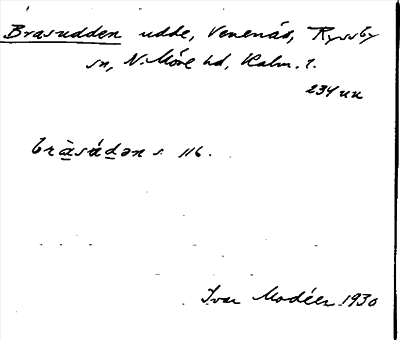 Brasudden udde, Venenäs, Ryssby
sn, N. Möre hd, Kalm. l.
234 uu
bràsádən s. 116.
Ivar Modéer 1930